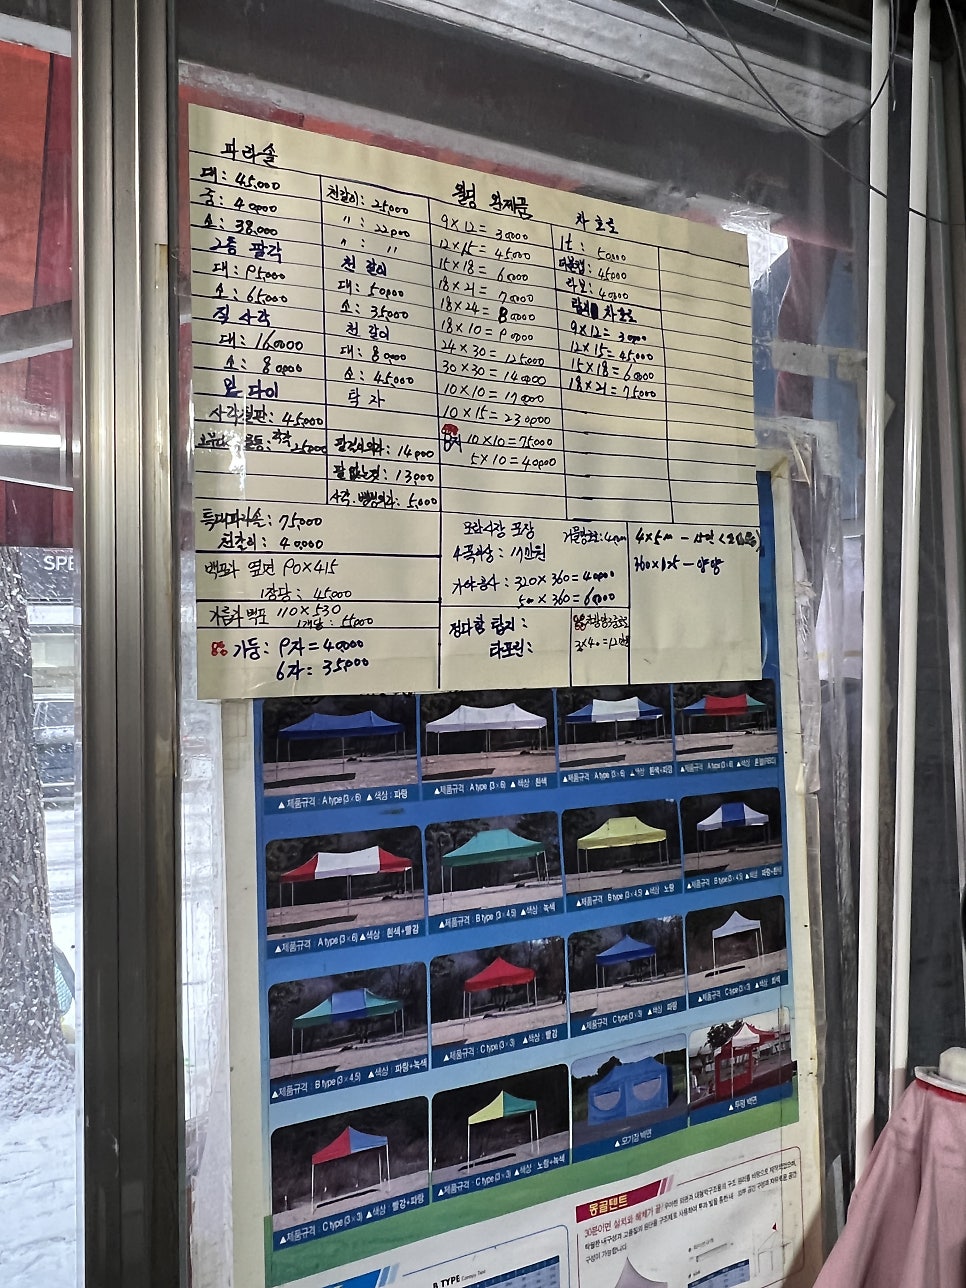 파라솔
대: 45,000
중: 40,000
소: 38,000
2층 팔각
대: 95,000
소: 65,000
직사각
대: 160,000
소: 80,000
원 다이
사각철판: 45,000
25,000
천갈이: 25,000
〃 : 22,000
〃 : 〃
천 갈이
대: 50,000
소: 35,000
천 갈이
대: 80,000
소: 45,000
탁자
팔걸이의자: 14,000
팔 없는것: 13,000
사각. 병정의자: 5,000
완제품
9×12= 30,000
12×15= 45,000
15×18= 60,000
18×21= 70,000
18×24= 80,000
18×10= 90,000
24×30= 125,000
30×30= 140,000
10×10= 170,000
10×15= 230,000
10×10= 75,000
5×10= 40,000
차 호로
1t: 50,000
더블캡: 45,000
라보: 40,000
차호로
9×12= 30,000
12×15= 45,000
15×18= 60,000
18×21= 75,000
특대파라솔: 75,000
천갈이: 40,000
백포라 옆면 90×415
1장당: 45,000
백포 110×530
1개당: 55,000
가둥: 9자= 40,000
6자= 35,000
모란시장 포장
4폭
320×360= 40,000
500×360= 60,000
접다함 탑지:
타포린:
3×40=12만원
4×5m
360×125 - 양양
SPE
▲제품규격 : A type (3×6) ▲색상 : 파랑
▲제품규격 : A type (3×6) ▲색상 : 흰색
▲제품규격 : A type (3×6) ▲색상 : 흰색+파랑
▲제품규격 : A type (3×6) ▲색상 :
▲제품규격 : A type (3×6) ▲색상 : 흰색+빨강
▲제품규격 : B type (3×4.5) ▲색상 : 녹색
▲제품규격 : B type (3×4.5) ▲색상 : 노랑
▲제품규격 : B type (3×4.5) ▲색상 : 파랑+흰색
▲제품규격 : B type (3×4.5) ▲색상 : 파랑+녹색
▲제품규격 : C type (3×3) ▲색상 : 빨강
▲제품규격 : C type (3×3) ▲색상 : 파랑
▲제품규격 : C type (3×3) ▲색상 : 흰색
▲제품규격 : C type (3×3) ▲색상 : 빨강+파랑
▲제품규격 : C type (3×3) ▲색상 : 노랑+녹색
▲모기장 벽면
▲투명 벽면
몽골텐트
30분이면 설치와 해체가 끝!
B TYPE